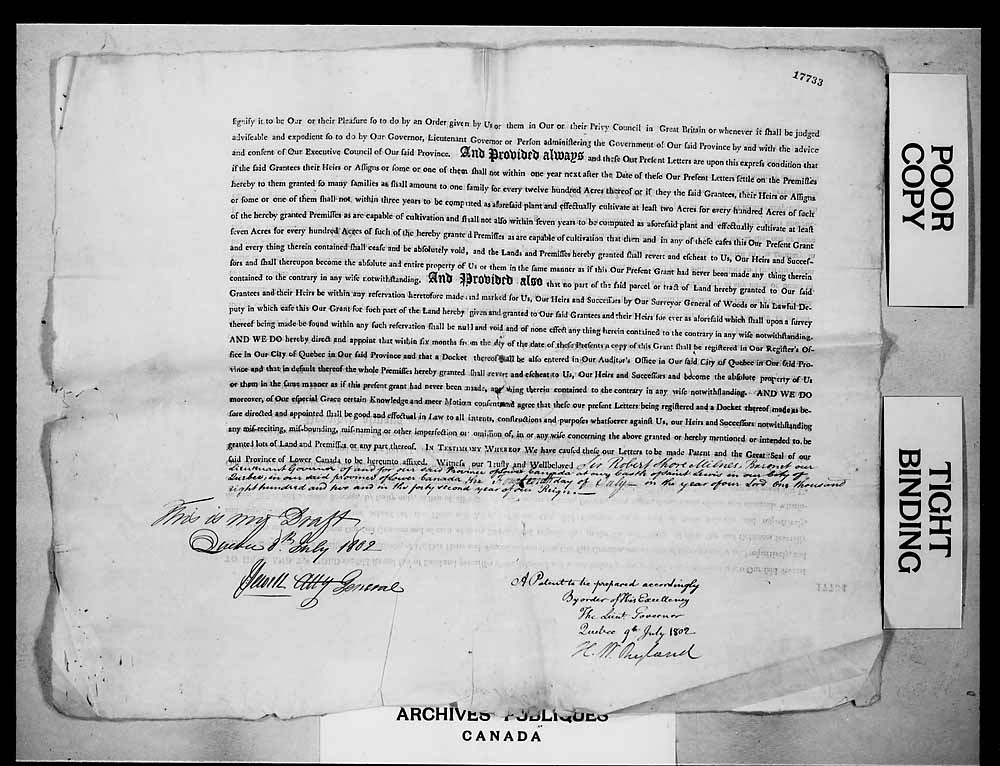 17733
signify it to be Our or their Pleasure so to do by an Order given by Us or them in Our or their Privy Council in Great Britain or whenever it shall be judged
adviseable and expedient so to do by Our Governor, Lieutenant Governor or Person administering the Government of Our said Province by and with the advice
and consent of Our Executive Council of Our said Province. And Provided always and these Our Present Letters are upon this express condition that
if the said Grantees their Heirs or Assigns or some or one of them shall not within one year next after the Date of these Our Present Letters settle on the Premisses
hereby to them granted so many families as shall amount to one family for every twelve hundred Acres thereof or if they the said Grantees, their Heirs or Assigns
or some or one of them shall not within three years to be computed as aforesaid plant and effectually cultivate at least two Acres for every hundred Acres of such
of the hereby granted Premisses as are capable of cultivation and shall not also within seven years to be computed as aforesaid plant and effectually cultivate at least
seven Acres for every hundred Acres of such of the hereby granted Premisses as are capable of cultivation that then and in any of these cases this Our Present Grant
and every thing therein contained shall cease and be absolutely void, and the Lands and Premisses hereby granted shall revert and escheat to Us, Our Heirs and Succes-
sors and shall thereupon become the absolute and entire property of Us or them in the same manner as if this Our Present Grant had never been made any thing therein
contained to the contrary in any wise notwithstanding. And Provided also that no part of the said parcel or tract of Land hereby granted to Our said
Grantees and their Heirs be within any reservation heretofore made and marked for Us, Our Heirs and Successors by Our Surveyor General of Woods or his Lawful De-
puty in which case this Our Grant for such part of the Land hereby given and granted to Our said Grantees and their Heirs for ever as aforesaid which shall upon a survey
thereof being made be found within any such reservation shall be null and void and of none effect any thing herein contained to the contrary in any wise notwithstanding.
AND WE DO hereby direct and appoint that within six months from the day of the date of these Presents a copy of this Grant shall be registered in Our Register's Of-
fice in Our City of Quebec in Our said Province and that a Docket thereof shall be also entered in Our Auditor's Office in Our said City of Quebec in Our said Pro-
vince and that in default thereof the whole Premisses hereby granted shall revert and escheat to Us, Our Heirs and Successors and become the absolute property of Us
or them in the same manner as if this present grant had never been made, any thing therein contained to the contrary in any wise notwithstanding. AND WE DO
moreover, of Our especial Grace certain Knowledge and meer Motion consent and agree that these our present Letters being registered and a Docket thereof made as be-
fore directed and appointed shall be good and effectual in Law to all intents, constructions and purposes whatsoever against Us, our Heirs and Successors notwithstanding
any mis-reciting, mis-bounding, mis-naming or other imperfection or omission of, in or any wise concerning the above granted or hereby mentioned or intended to be
granted lots of Land and Premisses or any part thereof. IN TESTIMONY WHEREOF We have caused these our Letters to be made Patent and the Great Seal of our
said Province of Lower Canada to be hereunto affixed. Witness our Trusty and Wellbeloved Sir Robert Shore Milnes, Baronet our
Lieutenant Governor of and for our said Province of Lower Canada at our Castle of Saint Lewis in our City of
Quebec, in our said province of Lower Canada, the day of July in the year of our Lord One thousand
eight hundred and two and in the forty second year of our Reign.
This is my Draft
Quebec 8th July 1802
J Sewell Atty General
A Patent to be prepared accordingly
By order of His Excellency
The Lieut. Governor
Quebec 9th July 1802
H. W. Ryland
POOR
COPY
TIGHT
BINDING
ARCHIVES PUBLIQUES
CANADA